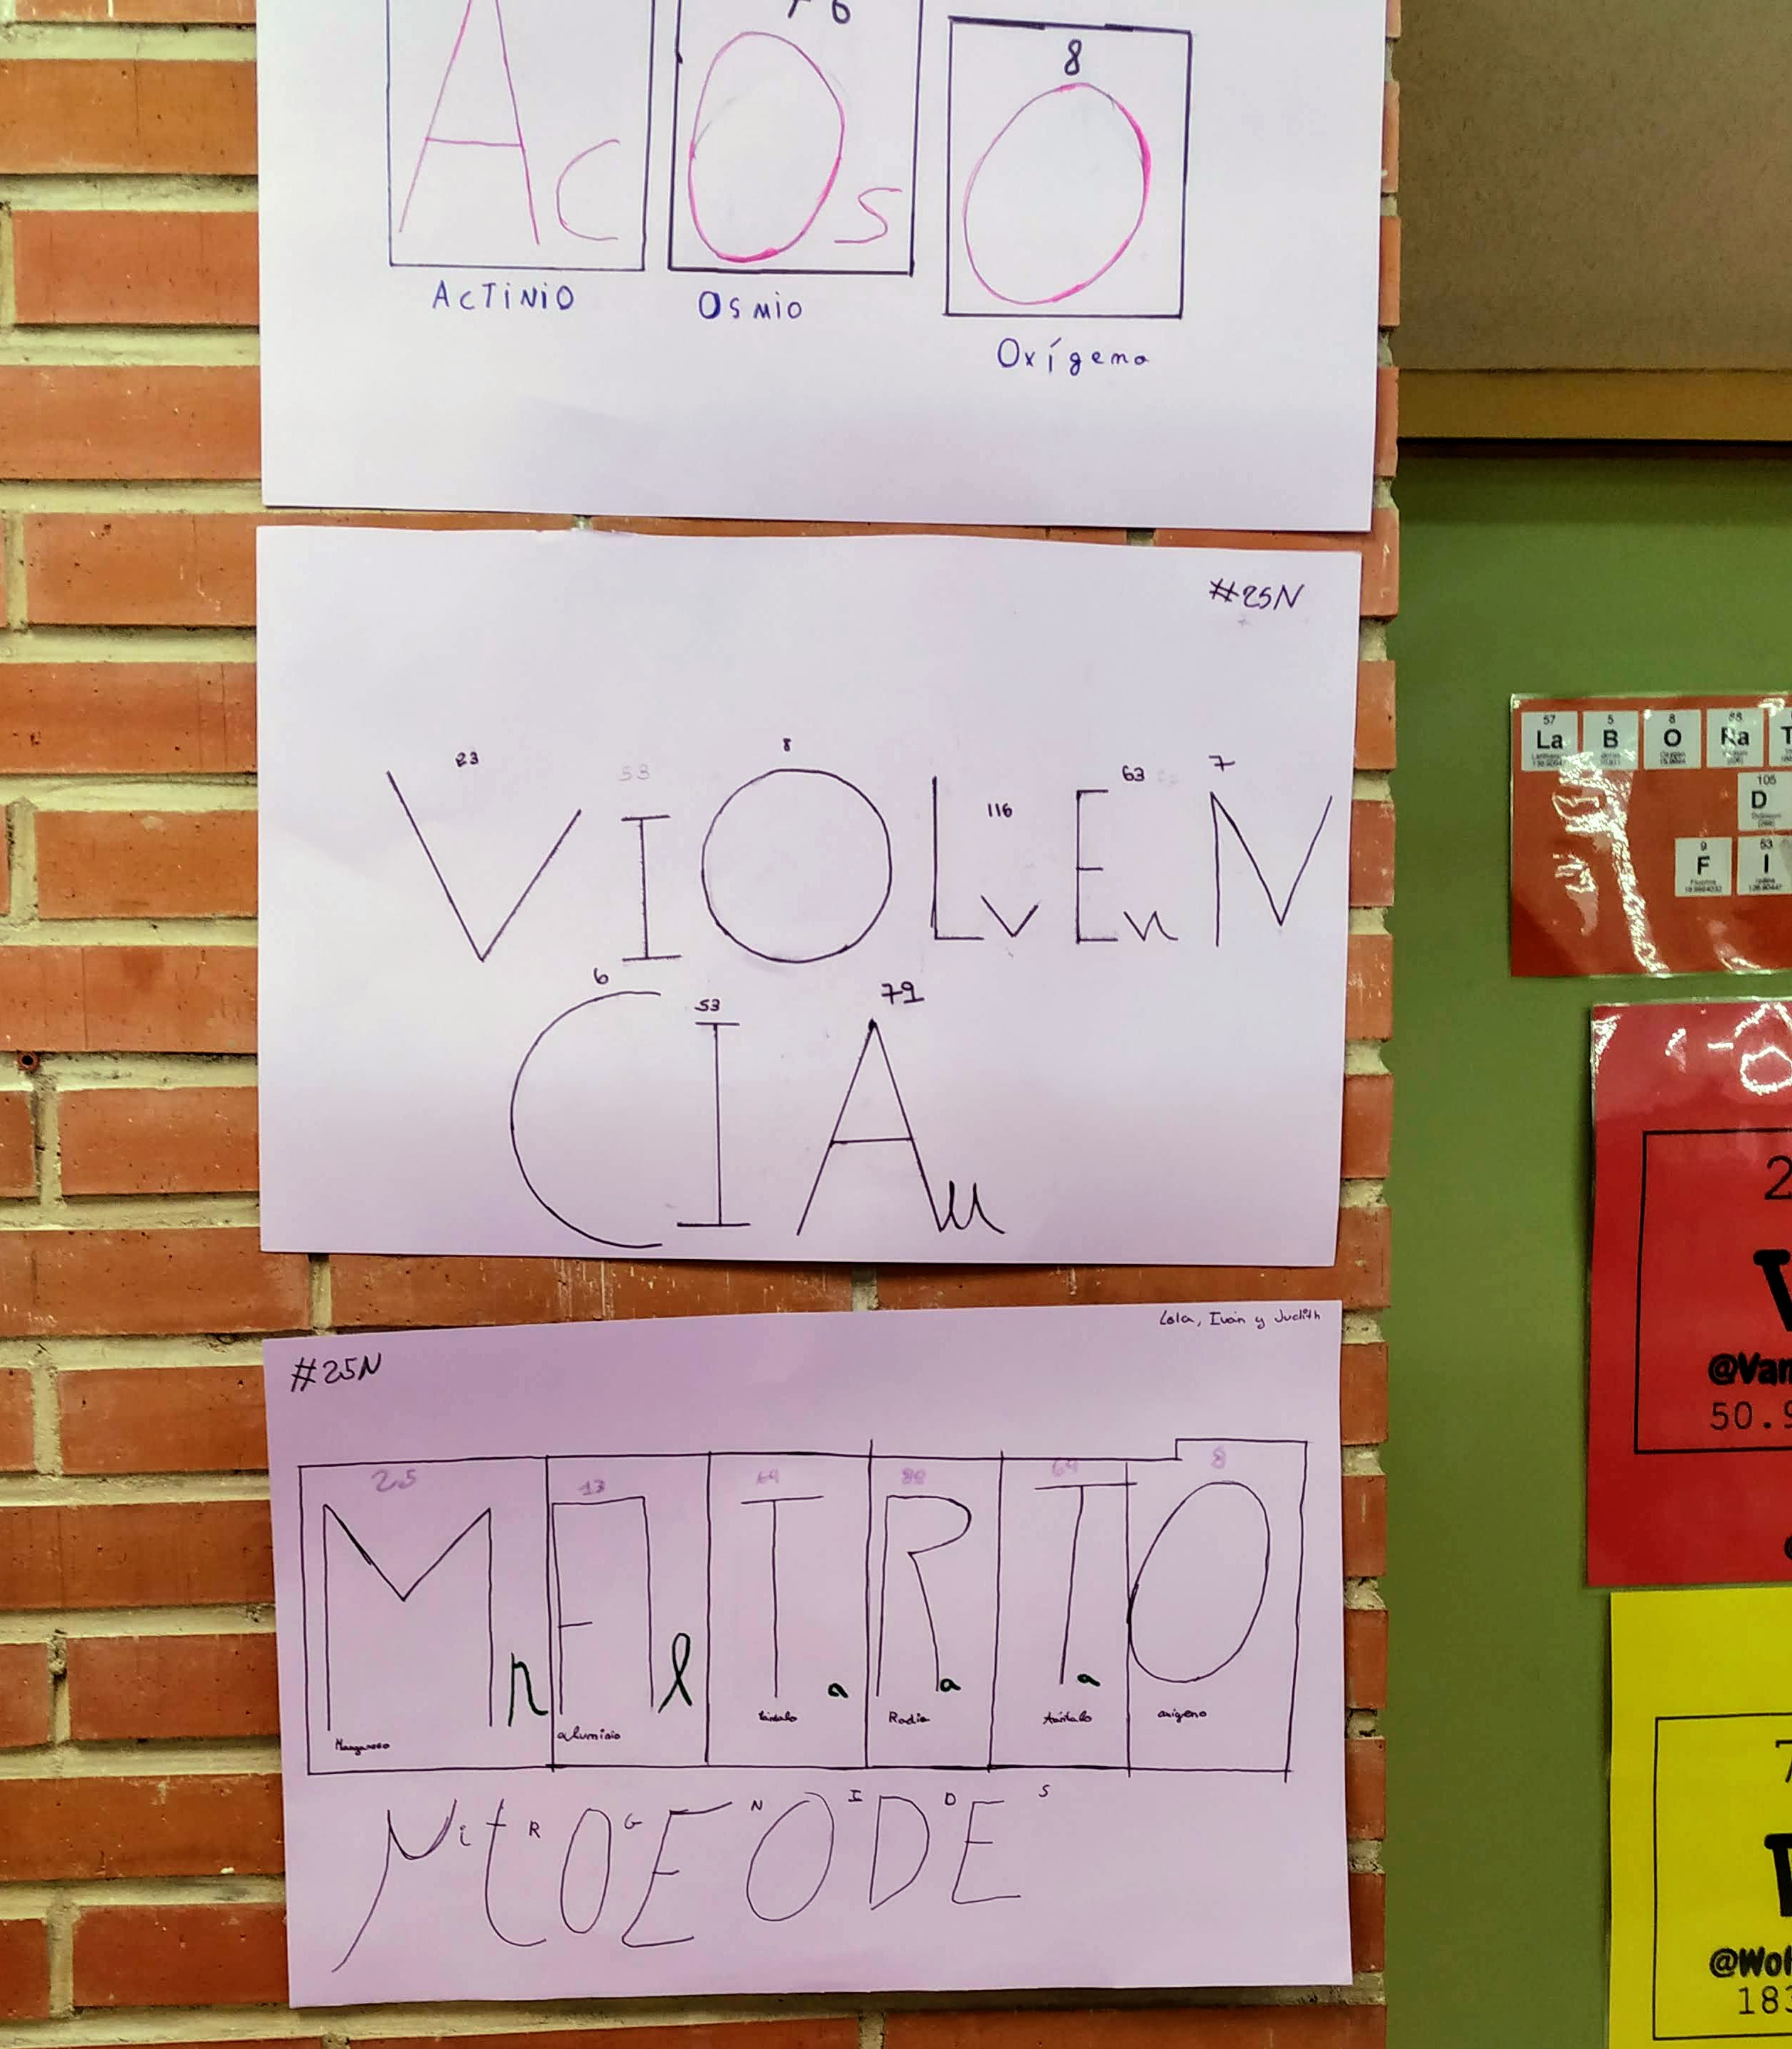 76 8
Ac Os O
ACTINIO OSMIO Oxígeno
#25N
23 53 8 116 63 7
V I O Lv En N
6 53 79
C I Au
Lola, Iván y Judith
#25N
25 13 64 88 64 8
Mn Al Ta Ra Ta O
Manganeso aluminio tántalo Radio tántalo oxigeno
N i t R O G E N O I D E S
57 5 8 88
La B O Ra T
105
D
9 53
F I
2
V
@Van
50.9
7
W
@Wol
183